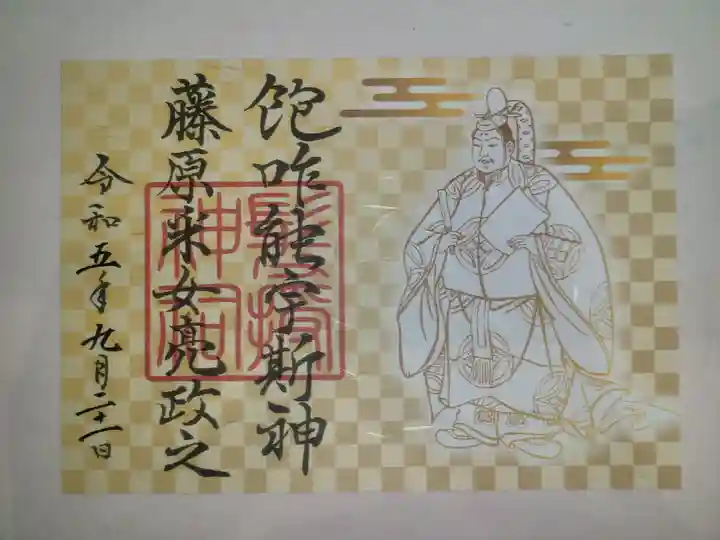 飽咋能宇斯神
藤原采女亮政之
令和五年九月二十一日
髪授
神祠